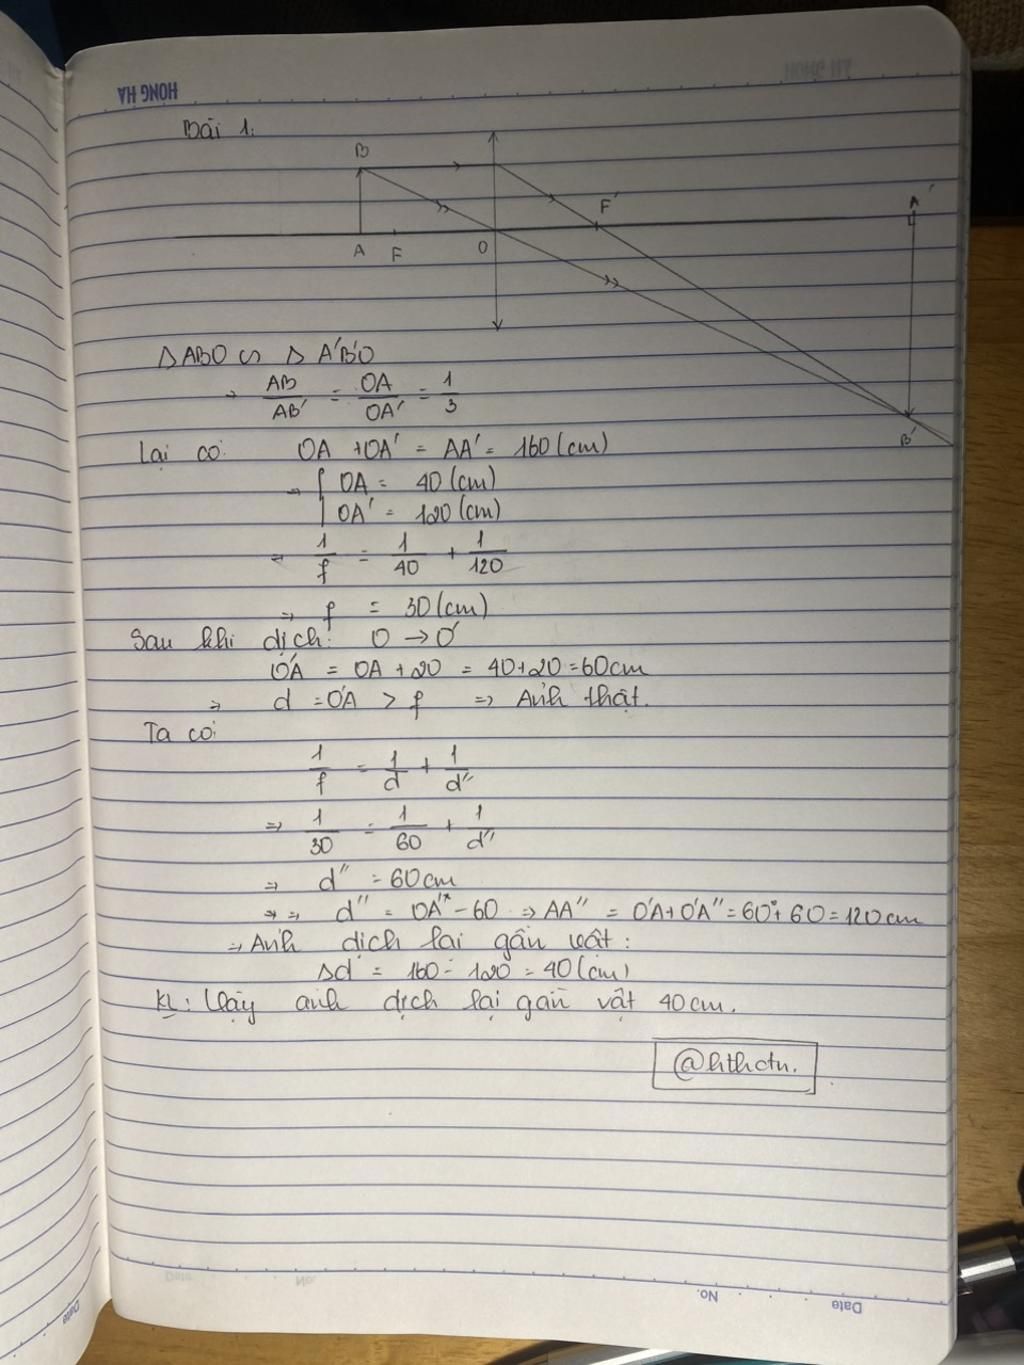 HONG HA
HONG HA
Bài 1:
B
F'
A'
A F O
B'
Δ ABO ∽ Δ A'B'O
→ AB/AB' = OA/OA' = 1/3
Lại có: OA + OA' = AA' = 160 (cm)
⇒ { OA = 40 (cm)
OA' = 120 (cm)
⇒ 1/f = 1/40 + 1/120
⇒ f = 30 (cm)
Sau khi dịch: O → O'
O'A = OA + 20 = 40 + 20 = 60cm
⇒ d = O'A > f ⇒ Ảnh thật.
Ta có:
1/f = 1/d + 1/d''
⇒ 1/30 = 1/60 + 1/d''
⇒ d'' = 60cm
⇒ ⇒ d'' = OA'' - 60 ⇒ AA'' = O'A + O'A'' = 60 + 60 = 120cm
⇒ Ảnh dịch lại gần vật:
Δd = 160 - 120 = 40 (cm)
KL: Vậy ảnh dịch lại gần vật 40cm.
@hthctn.
Date No.
No. Date
Date